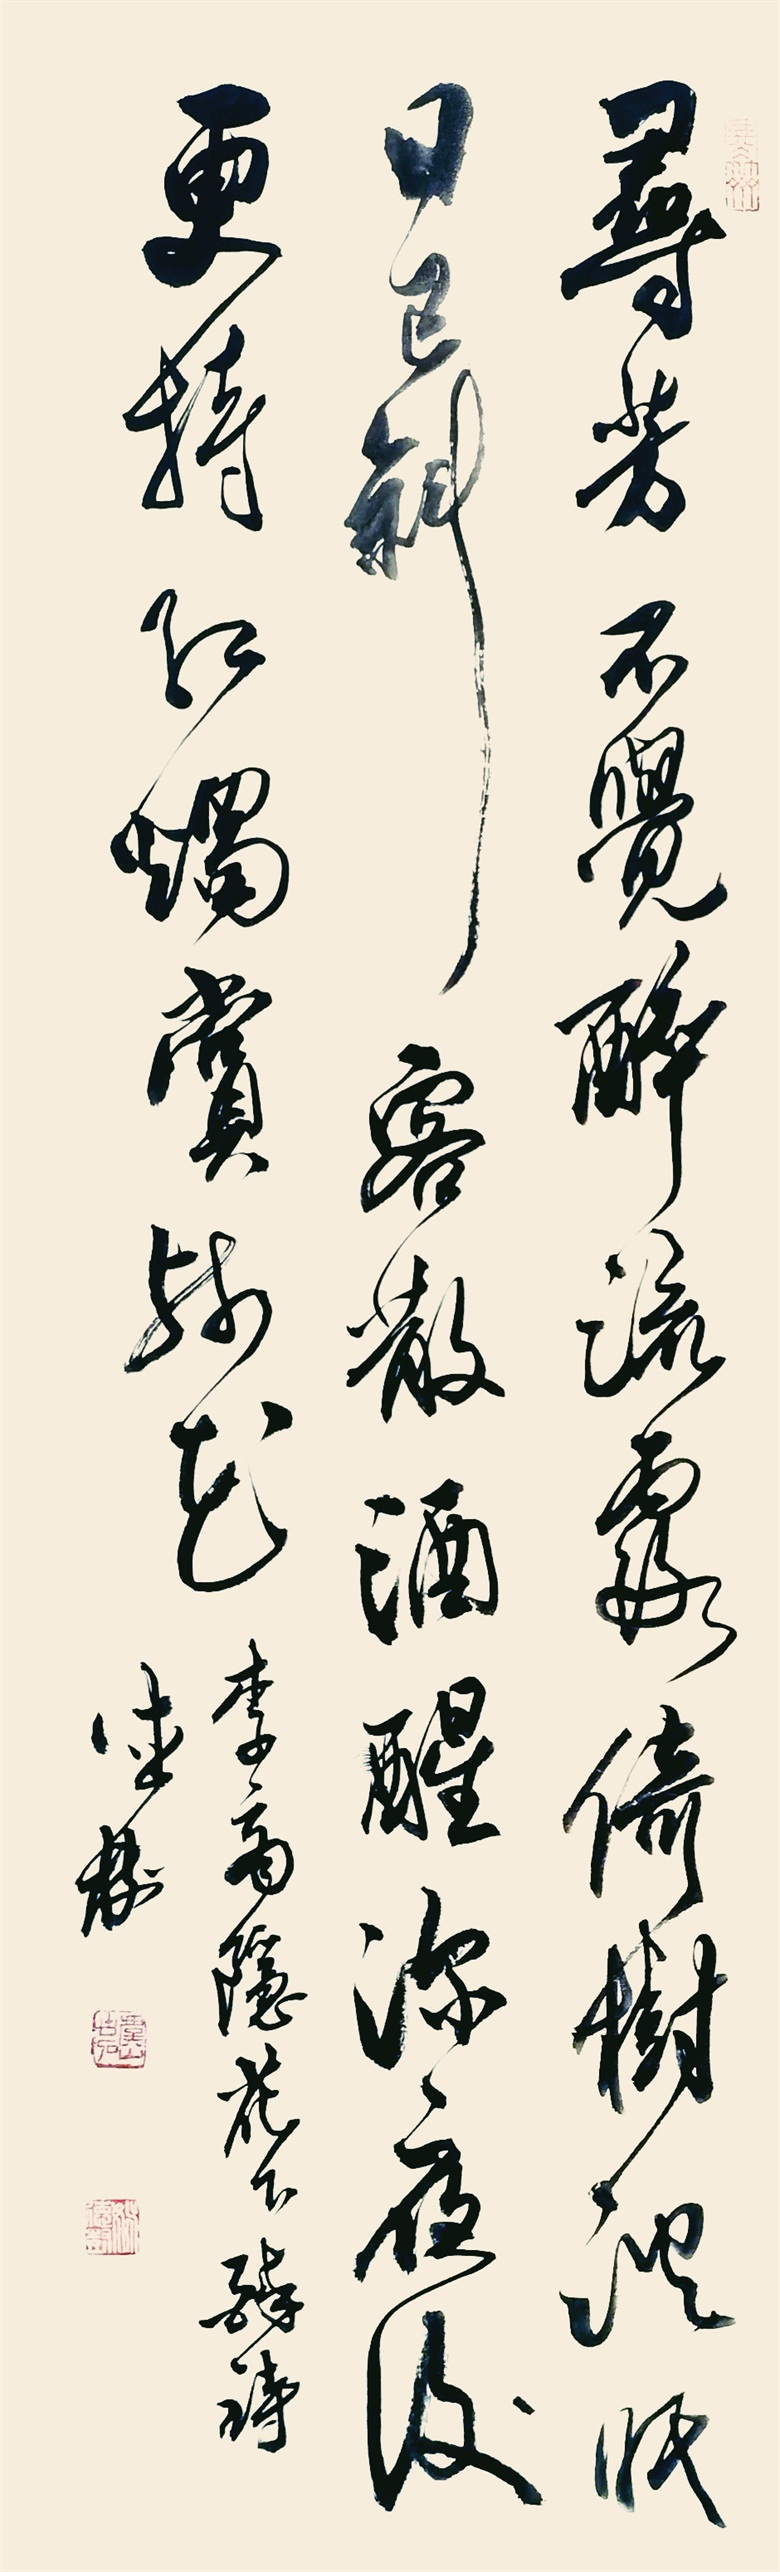 尋芳不覺醉流霞倚樹沉眠
日已斜客散酒醒深夜後
更持紅燭賞殘花
李商隱花下醉詩